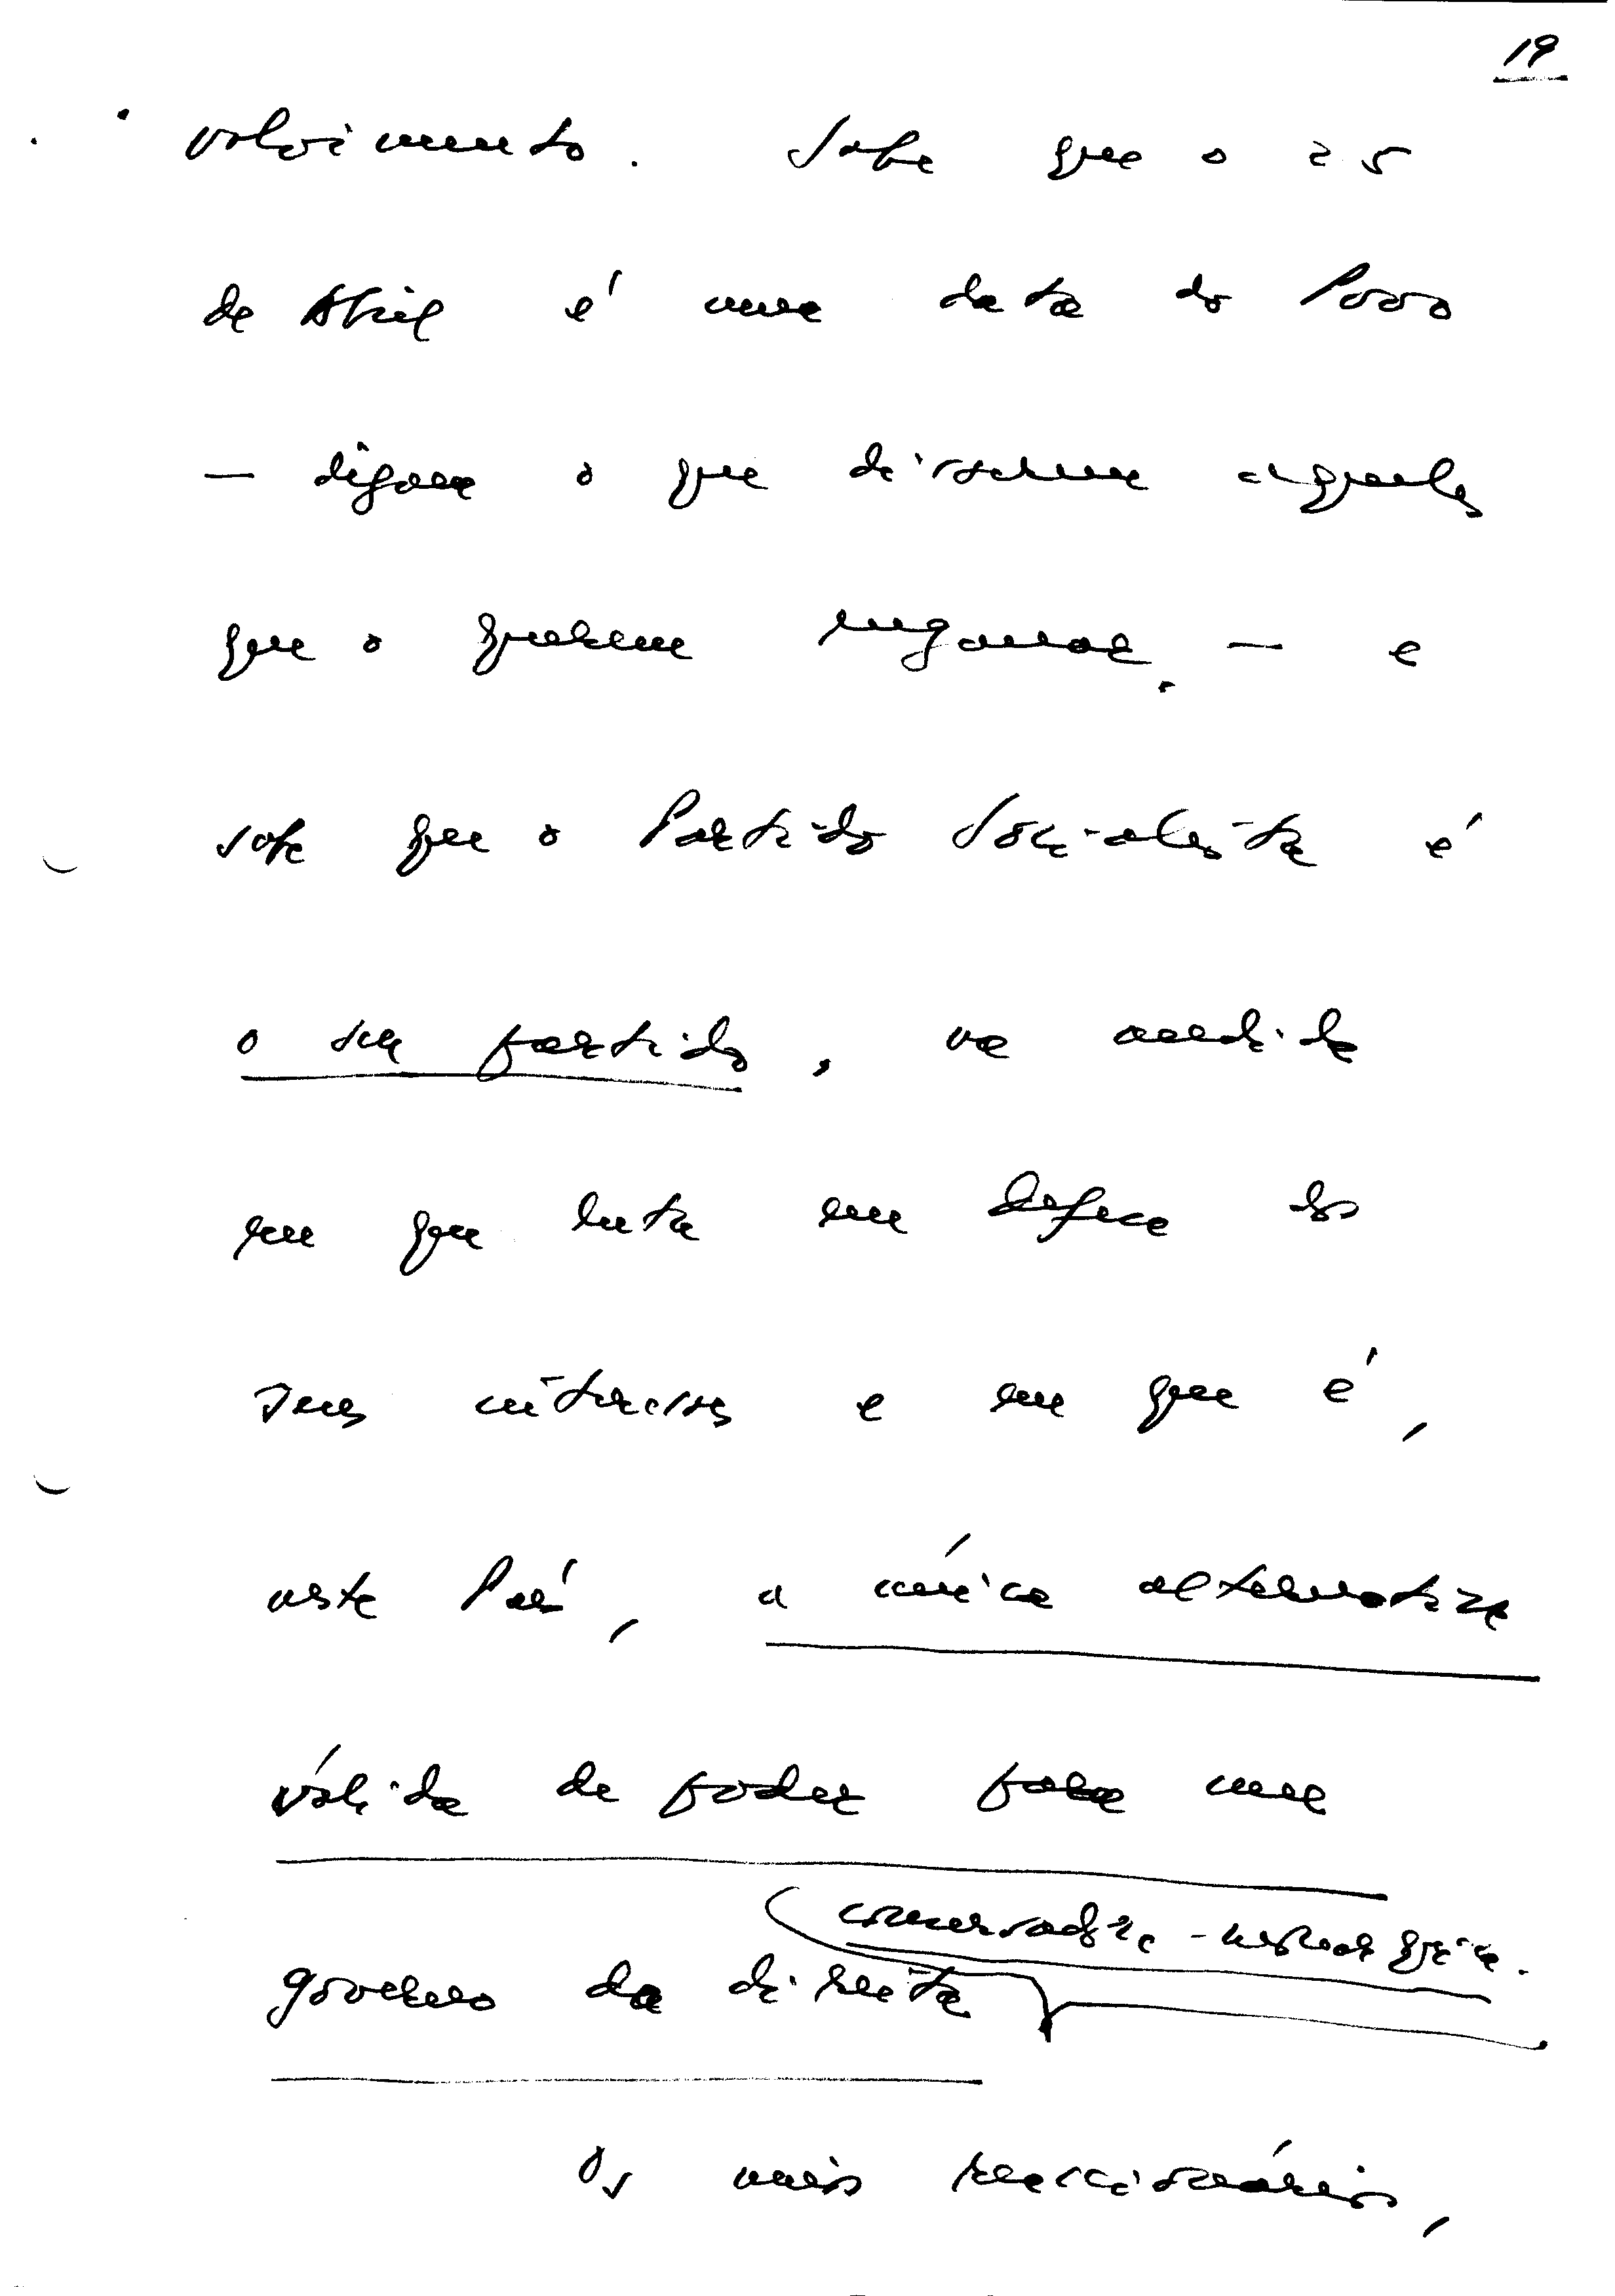 19
volvimento. Sabe que o 25
de Abril é uma data do Povo
— digam o que disserem aqueles
que o querem enganar. — e
sabe que o Partido Socialista é
o seu partido, na medida
em que luta em defesa dos
seus interesses e em que é,
neste País, a única alternativa
válida de poder para um
conservador e
governo da direita
Os mais reaccionários,